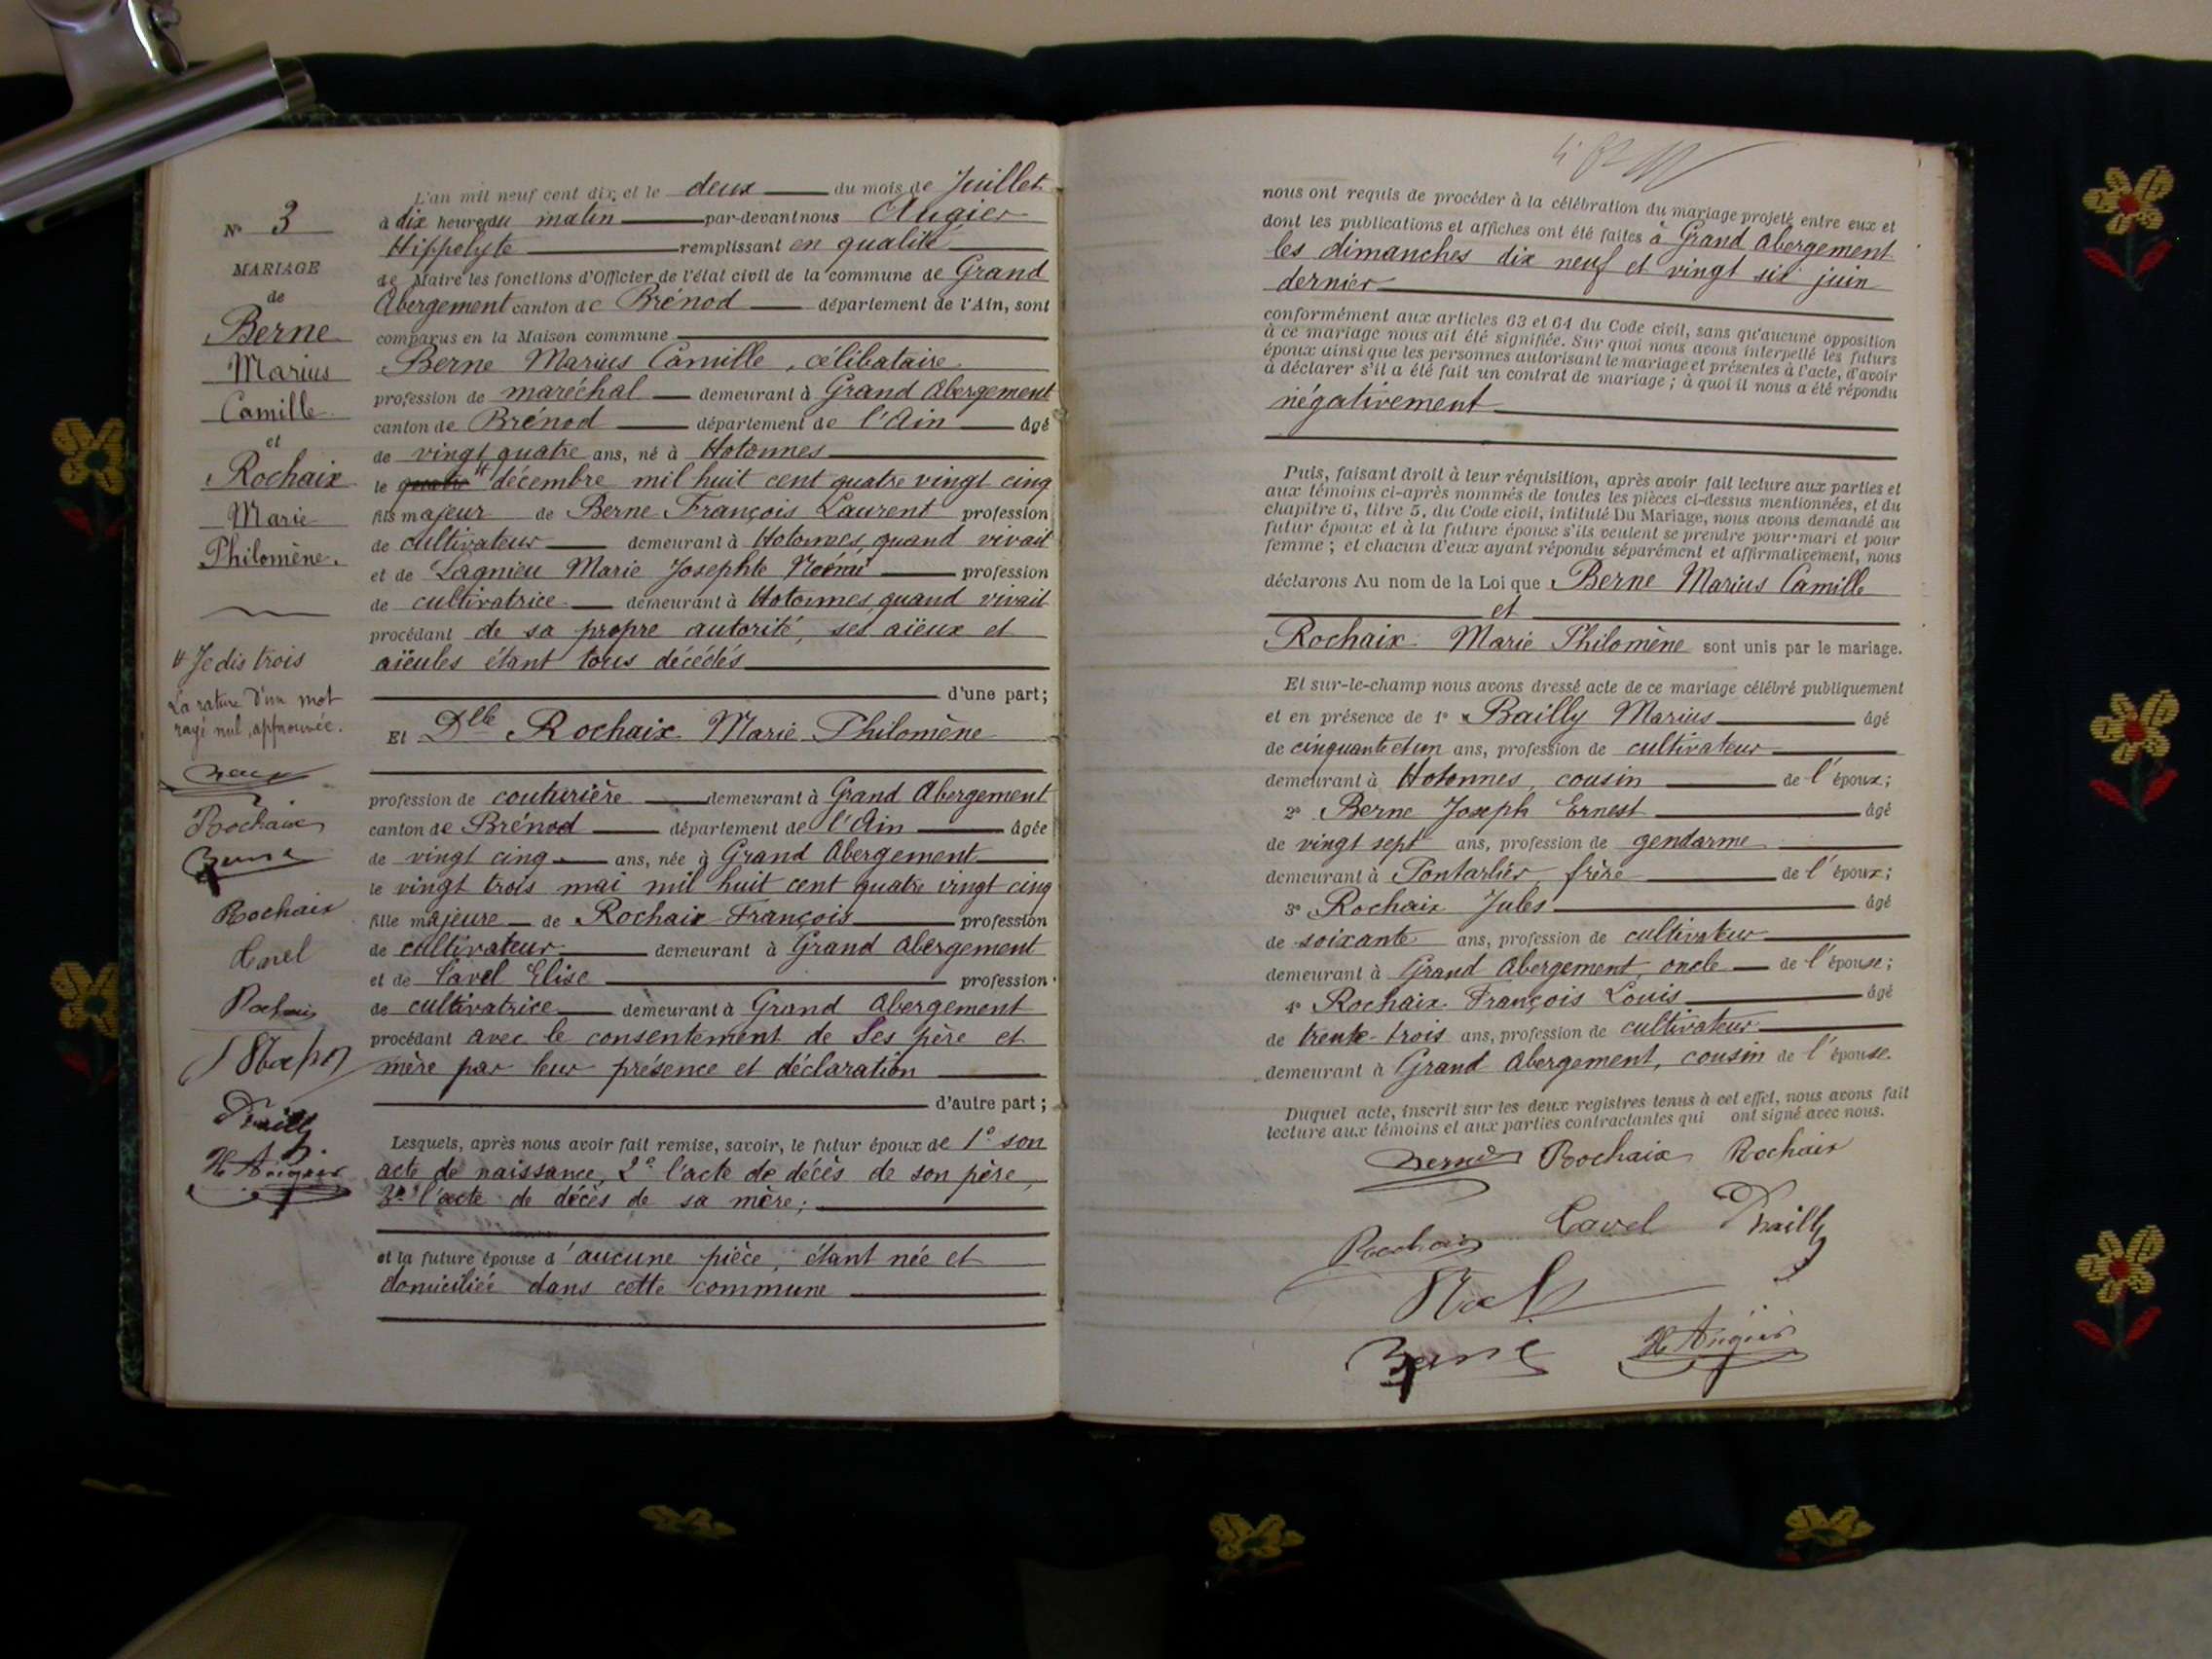 N° 3
MARIAGE
de
Berne
Marius
Camille
et
Rochaix
Marie
Philomène.
# Je dis trois
La rature d'un mot
rayé nul, approuvée.
Rochaix
Berne
Rochaix
Cavel
Rochaix
Bailly
H Augier
L'an mil neuf cent dix, et le deux du mois de Juillet
à dix heures du matin par-devant nous Augier
Hippolyte remplissant en qualité
de Maire les fonctions d'Officier de l'état civil de la commune de Grand
Abergement canton de Brénod département de l'Ain, sont
comparus en la Maison commune
Berne Marius Camille, célibataire
profession de maréchal demeurant à Grand Abergement
canton de Brénod département de l'Ain âgé
de vingt quatre ans, né à Hotonnes
le quatre # décembre mil huit cent quatre vingt cinq
fils majeur de Berne François Laurent profession
de cultivateur demeurant à Hotonnes, quand vivait
et de Lagnieu Marie Josephte profession
de cultivatrice demeurant à Hotonnes, quand vivait
procédant de sa propre autorité, ses aïeux et
aïeules étant tous décédés
d'une part;
Et Dlle Rochaix Marie Philomène
profession de couturière demeurant à Grand Abergement
canton de Brénod département de l'Ain âgée
de vingt cinq ans, née à Grand Abergement
le vingt trois mai mil huit cent quatre vingt cinq
fille majeure de Rochaix François profession
de cultivateur demeurant à Grand Abergement
et de Cavel Elise profession
de cultivatrice demeurant à Grand Abergement
procédant avec le consentement de Ses père et
mère par leur présence et déclaration
d'autre part;
Lesquels, après nous avoir fait remise, savoir, le futur époux de 1° son
acte de naissance, 2° l'acte de décès de son père,
3° l'acte de décès de sa mère;
et la future épouse d'aucune pièce, étant née et
domiciliée dans cette commune
nous ont requis de procéder à la célébration du mariage projeté entre eux et
dont les publications et affiches ont été faites à Grand Abergement
les dimanches dix neuf et vingt six juin
dernier
conformément aux articles 63 et 64 du Code civil, sans qu'aucune opposition
à ce mariage nous ait été signifiée. Sur quoi nous avons interpellé les futurs
époux ainsi que les personnes autorisant le mariage et présentes à l'acte, d'avoir
à déclarer s'il a été fait un contrat de mariage; à quoi il nous a été répondu
négativement
Puis, faisant droit à leur réquisition, après avoir fait lecture aux parties et
aux témoins ci-après nommés de toutes les pièces ci-dessus mentionnées, et du
chapitre 6, titre 5, du Code civil, intitulé Du Mariage, nous avons demandé au
futur époux et à la future épouse s'ils veulent se prendre pour mari et pour
femme; et chacun d'eux ayant répondu séparément et affirmativement, nous
déclarons Au nom de la Loi que Berne Marius Camille
et
Rochaix Marie Philomène sont unis par le mariage.
Et sur-le-champ nous avons dressé acte de ce mariage célébré publiquement
et en présence de 1° Bailly Marius âgé
de cinquante et un ans, profession de cultivateur
demeurant à Hotonnes, cousin de l'époux;
2° Berne Joseph Ernest âgé
de vingt sept ans, profession de gendarme
demeurant à Pontarlier frère de l'époux;
3° Rochaix Jules âgé
de soixante ans, profession de cultivateur
demeurant à Grand Abergement, oncle de l'épouse;
4° Rochaix François Louis âgé
de trente-trois ans, profession de cultivateur
demeurant à Grand Abergement, cousin de l'épouse.
Duquel acte, inscrit sur les deux registres tenus à cet effet, nous avons fait
lecture aux témoins et aux parties contractantes qui ont signé avec nous.
Berne Rochaix Rochaix
Rochaix Cavel Bailly
Berne H Augier